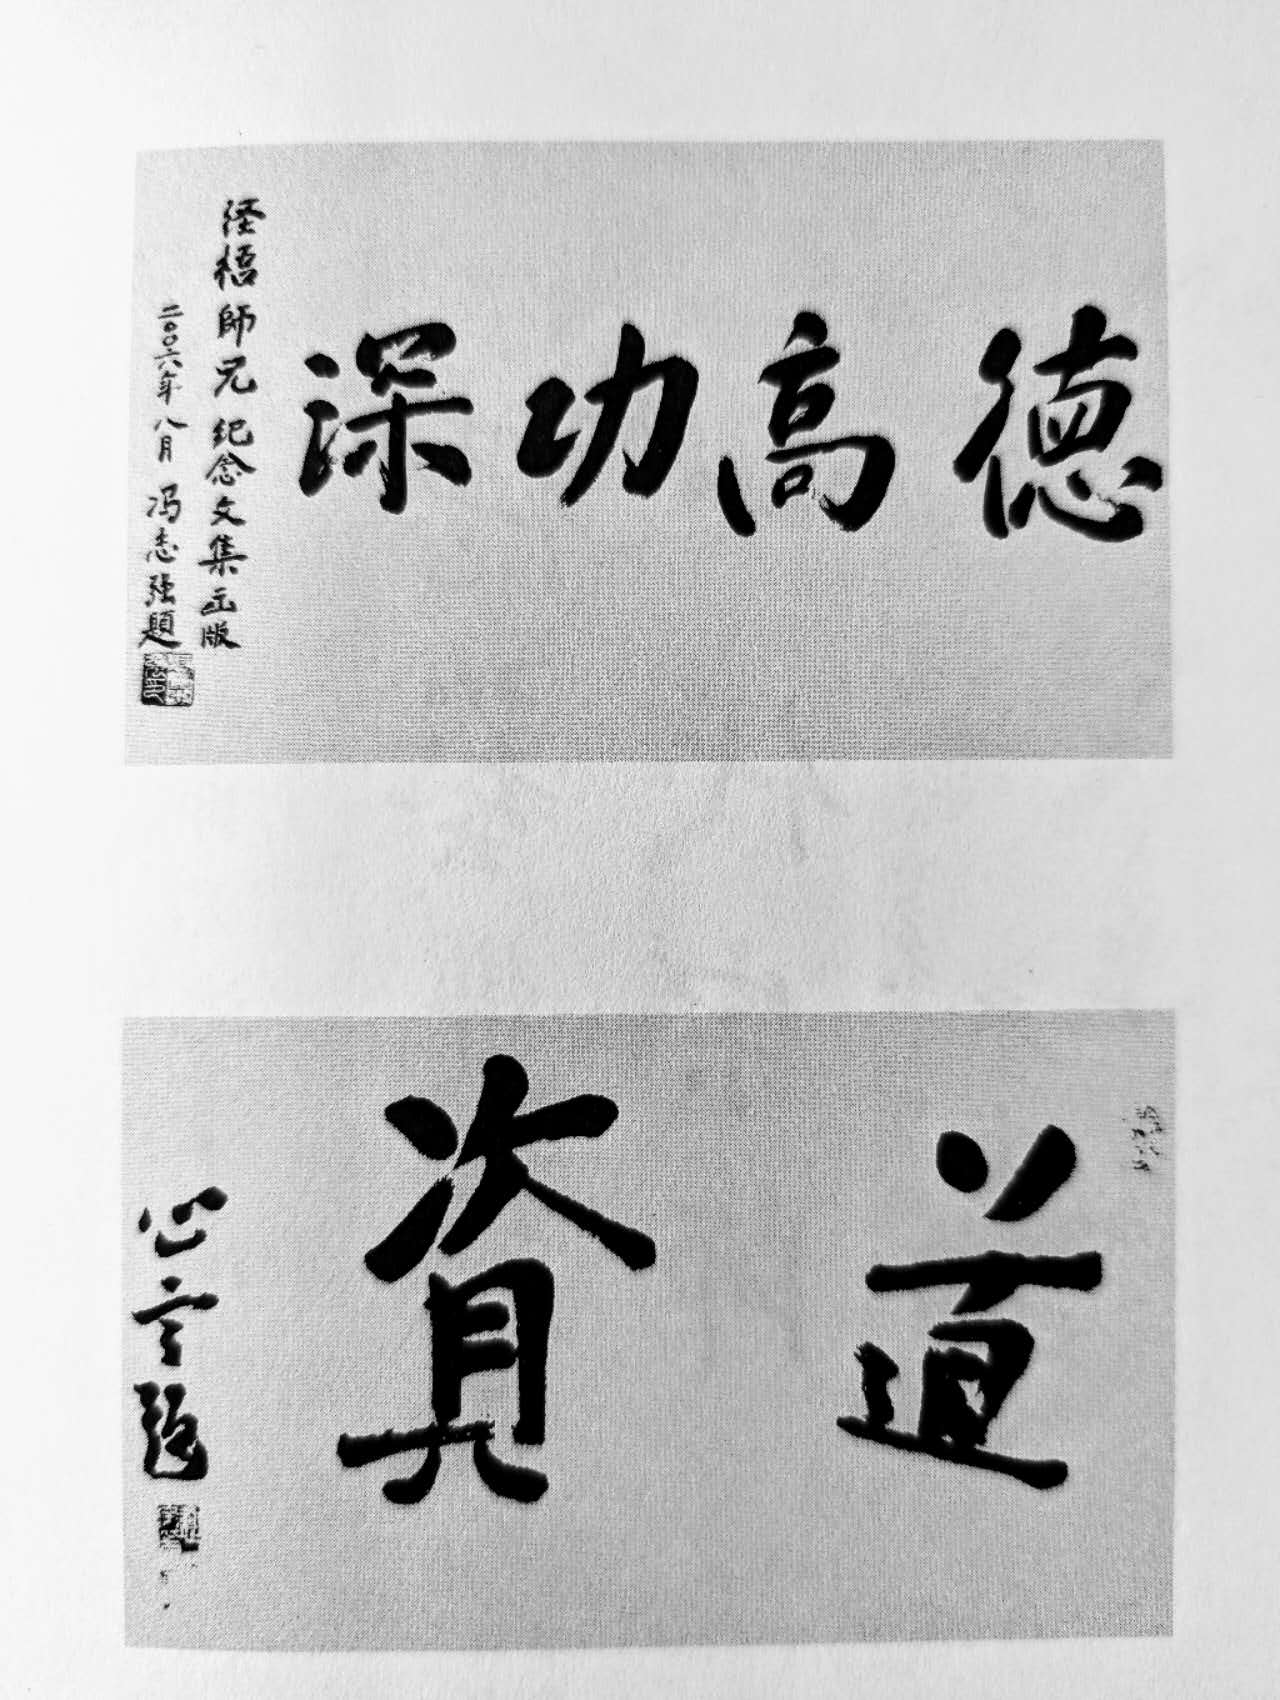 德高功深
泾梧師兄纪念文集出版
二〇〇六年八月 冯志强題
道資
心云題